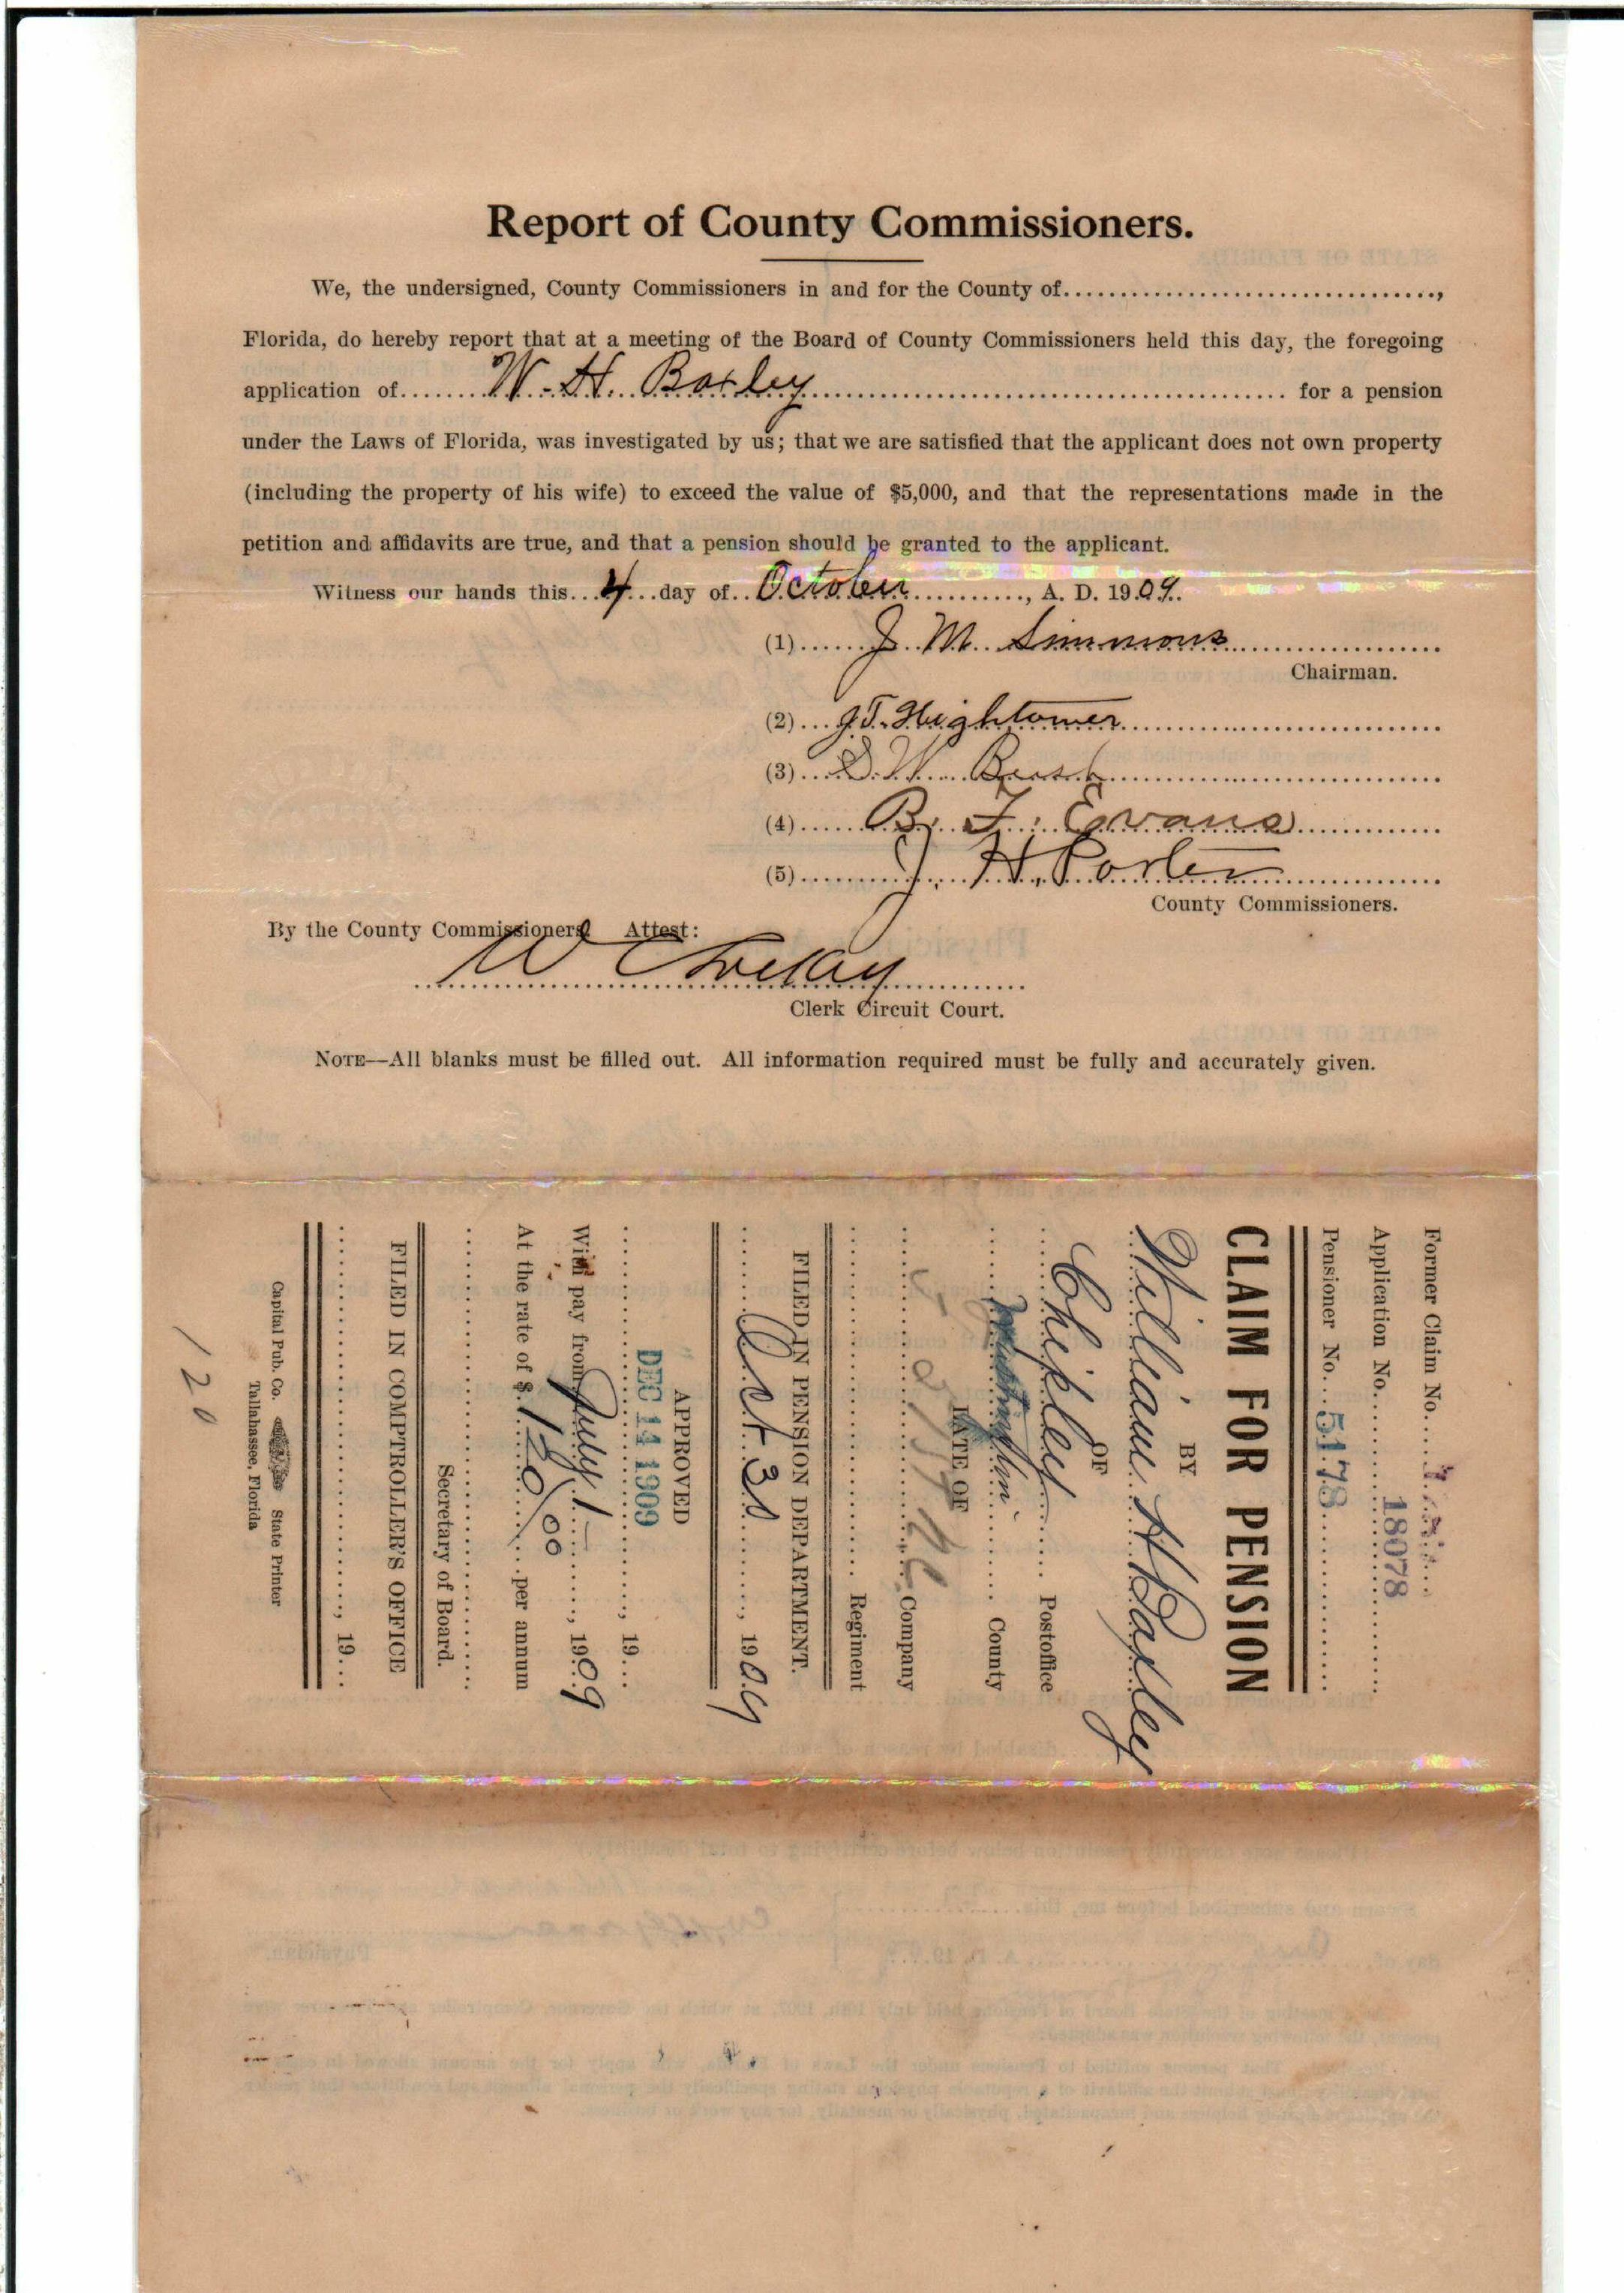 Report of County Commissioners.
We, the undersigned, County Commissioners in and for the County of..........,
Florida, do hereby report that at a meeting of the Board of County Commissioners held this day, the foregoing
application of W. H. Baxley for a pension
under the Laws of Florida, was investigated by us; that we are satisfied that the applicant does not own property
(including the property of his wife) to exceed the value of $5,000, and that the representations made in the
petition and affidavits are true, and that a pension should be granted to the applicant.
Witness our hands this 4 day of October, A. D. 1909.
(1) J. M. Simmons
Chairman.
(2) J. T. Hightower
(3) S. W. Brash
(4) B. F. Evans
(5) J. H. Porter
County Commissioners.
By the County Commissioners. Attest:
W C
Clerk Circuit Court.
NOTE—All blanks must be filled out. All information required must be fully and accurately given.
Former Claim No.
Application No. 18078
Pensioner No. 5178
CLAIM FOR PENSION
BY
William H Baxley
OF
Chipley Postoffice
Washington County
LATE OF
Company
Regiment
FILED IN PENSION DEPARTMENT.
Oct 30, 1909
APPROVED
DEC 14 1909
, 19...
With pay from July 1—, 1909
At the rate of $ 120/00 per annum
Secretary of Board.
FILED IN COMPTROLLER'S OFFICE
, 19...
Capital Pub. Co. State Printer
Tallahassee, Florida
120